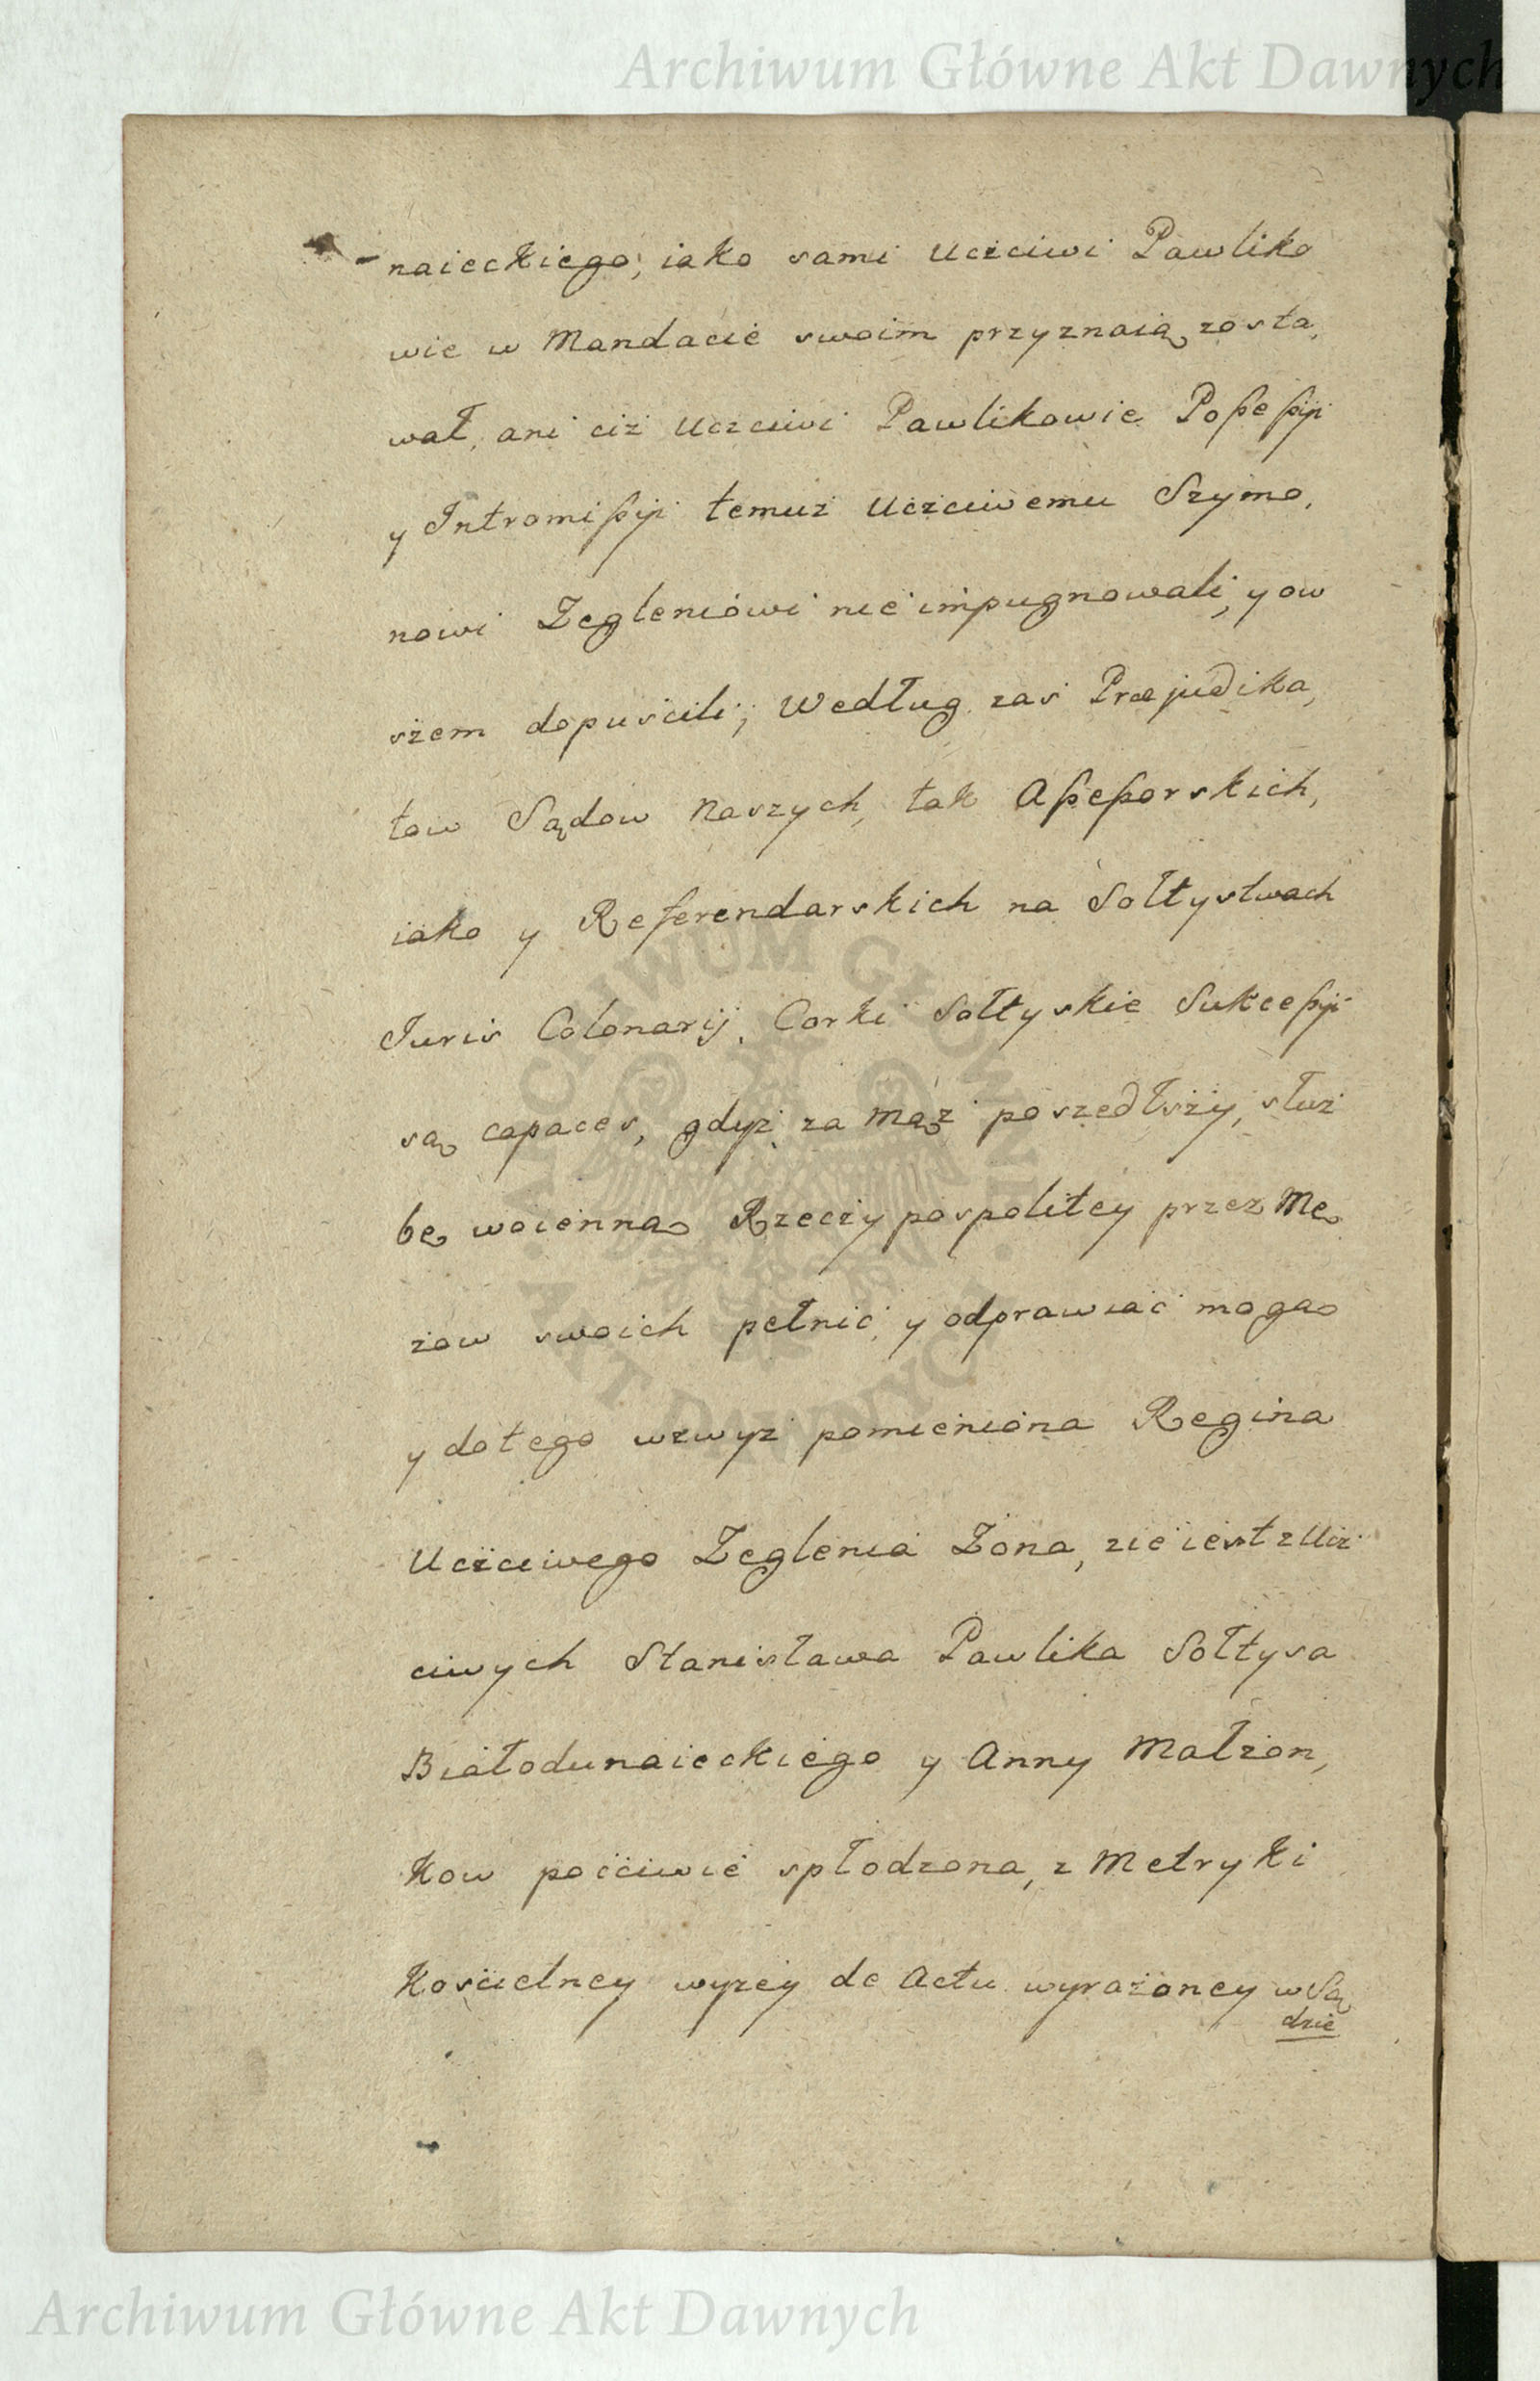 Archiwum Główne Akt Dawnych
-naieckiego; iako sami Uczciwi Pawliko
wie w Mandacie swoim przyznaią, zosta,
wał, ani ciż Uczciwi Pawlikowie Possessyi
y Intromissyi temuż Uczciwemu Szymo,
nowi Żegleniowi nie impugnowali, y ow
szem dopuścili; Według zaś Præjudika,
tow Sądow Naszych, tak Assessorskich,
iako y Referendarskich na Sołtystwach
Juris Colonarij, Corki Sołtyskie Sukcessyi
są capaces, gdyż za Mąż poszedłszy, służ
bę woienną Rzeczypospolitey przez Mę
żow swoich pełnić, y odprawiać mogą
y dotego wzwyż pomieniona Regina
Uczciwego Żeglenia Żona, zie iest z Ucz
ciwych Stanisława Pawlika Sołtysa
Białodunaieckiego y Anny Małżon,
kow poćciwie spłodzona, z Metryki
Kościelney wyżey de Actu wyrażoney w Są
dzie
ARCHIWUM GŁÓWNE
AKT DAWNYCH
Archiwum Główne Akt Dawnych